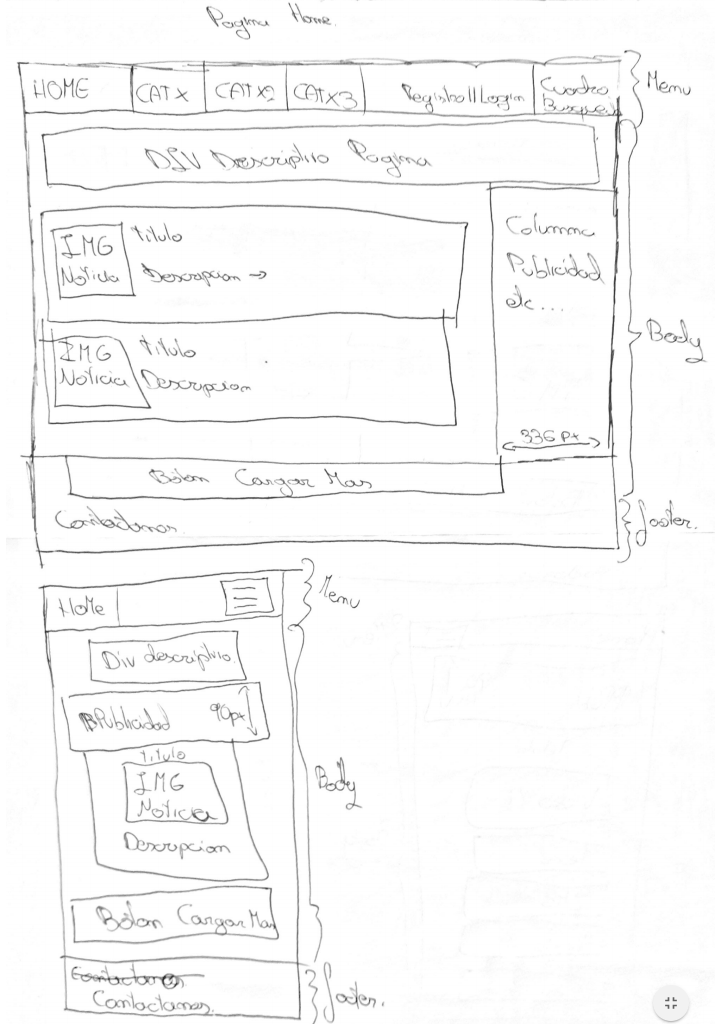 Pagina Home.
HOME
CATX
CATX2
CATX3
Registro||Login
Cuadro
Busqueda
Menu
DIV Descriptivo Pagina
IMG
Noticia
titulo
Descripcion →
Columna
Publicidad
etc...
IMG
Noticia
titulo
Descripcion
336 Px
Body
Boton Cargar Mas
Contactanos.
footer.
Home
Menu
Div descriptivo
Publicidad
90px
titulo
IMG
Noticia
Descripcion
Body
Boton Cargar Mas
Contactanos
Contactanos.
footer.